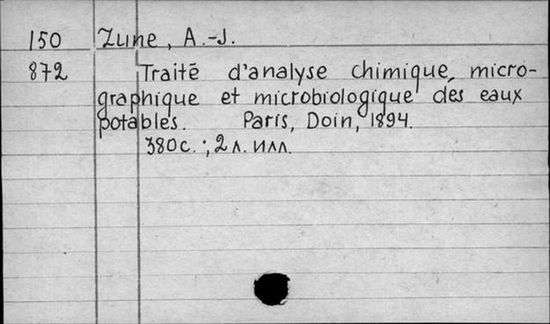 150 Zune, A.-J.
872 Traité d'analyse chimique, micro-
graphique et microbiologique des eaux
potables. Paris, Doin, 1894.
380с.; 2 л. илл.